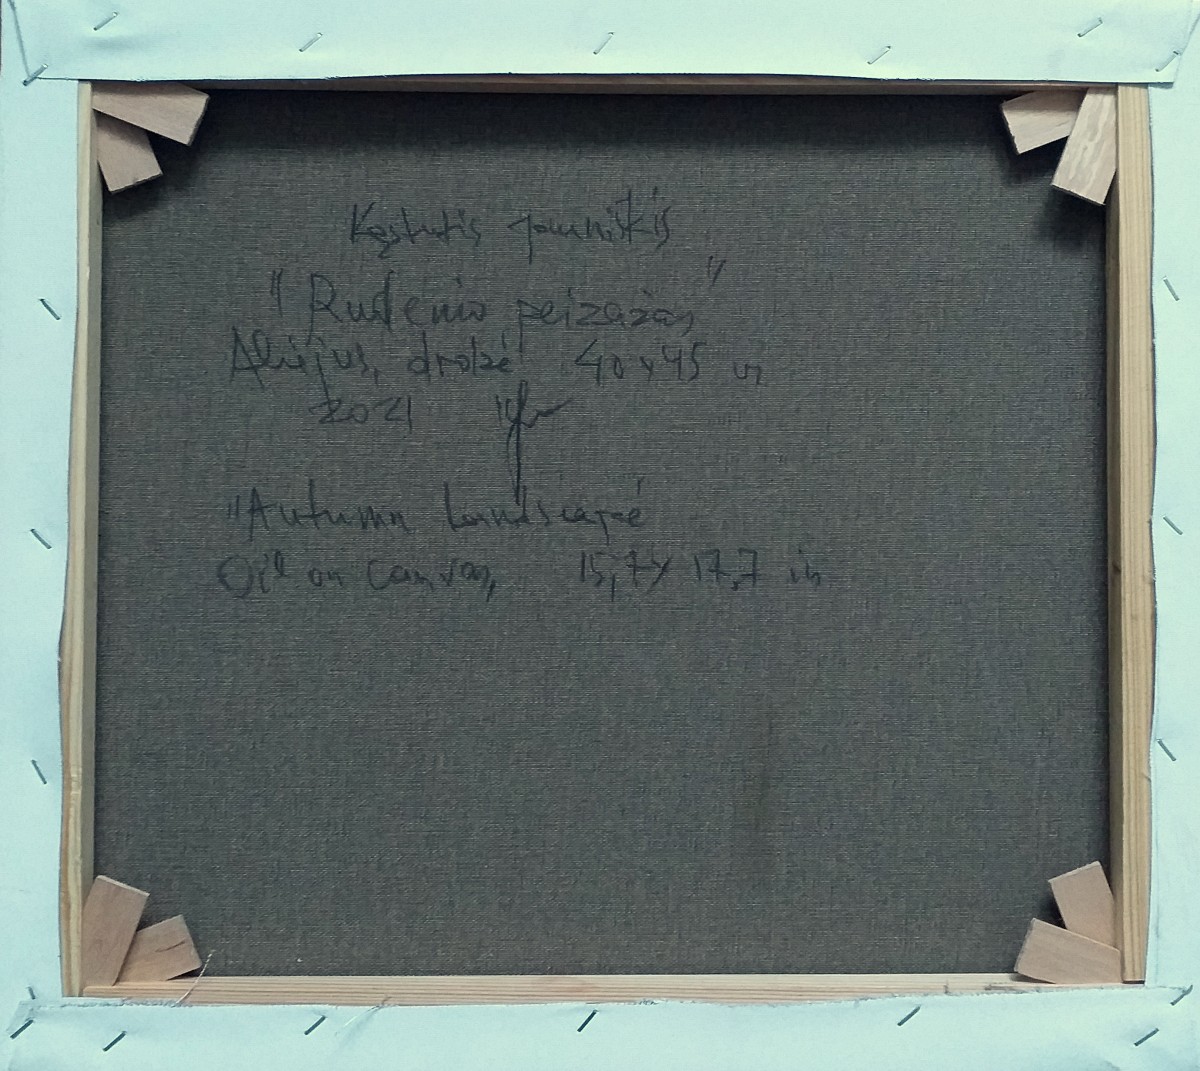 Kęstutis Jauniškis
"Rudenio peizažas"
Aliejus, drobė 40x45 cm
2021
"Autumn Landscape"
Oil on canvas, 15,7x17,7 in